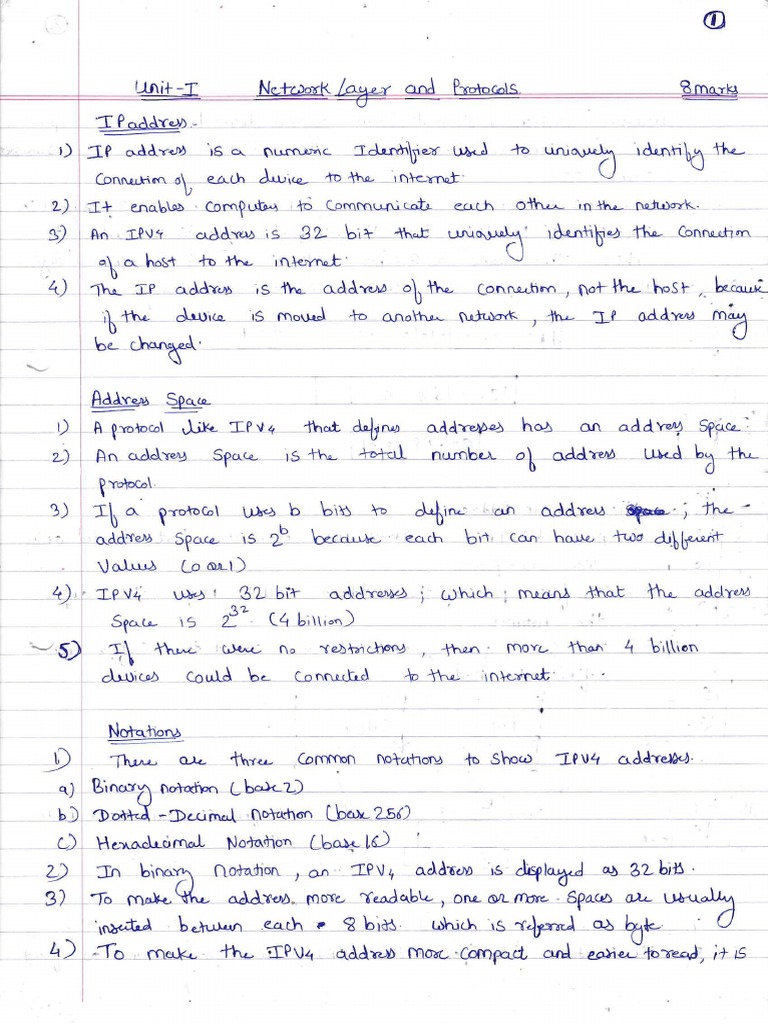 1
Unit-I Network Layer and Protocols 8marks
IP address.
1) IP address is a numeric Identifier used to uniquely identify the
Connection of each device to the internet.
2) It enables computes to communicate each other in the network.
3) An IPV4 address is 32 bit that uniquely identifies the connection
of a host to the internet.
4) The IP address is the address of the connection, not the host, because
if the device is moved to another network, the IP address may
be changed.
Address Space
1) A protocol like IPV4 that defines addresses has an address space.
2) An address space is the total number of address used by the
protocol.
3) If a protocol uses b bits to define an address space; the
address space is 2^b because each bit can have two different
values (0 or 1)
4) IPV4 uses 32 bit addresses; which means that the address
Space is 2^32 (4 billion)
5) If there were no restrictions, then more than 4 billion
devices could be connected to the internet.
Notations
1) There are three common notations to show IPV4 addresses.
a) Binary notation (base 2)
b) Dotted-Decimal Notation (base 256)
c) Hexadecimal Notation (base 16)
2) In binary notation, an IPV4 address is displayed as 32 bits.
3) To make the address more readable, one or more spaces are usually
inserted between each 8 bits. which is referred as byte
4) To make the IPV4 address more compact and easier to read, it is